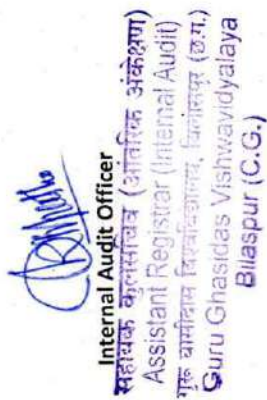 Internal Audit Officer
सहायक कुलसचिव (आंतरिक अंकेक्षण)
Assistant Registrar (Internal Audit)
गुरू घासीदास विश्वविद्यालय, बिलासपुर (छ.ग.)
Guru Ghasidas Vishwavidyalaya
Bilaspur (C.G.)